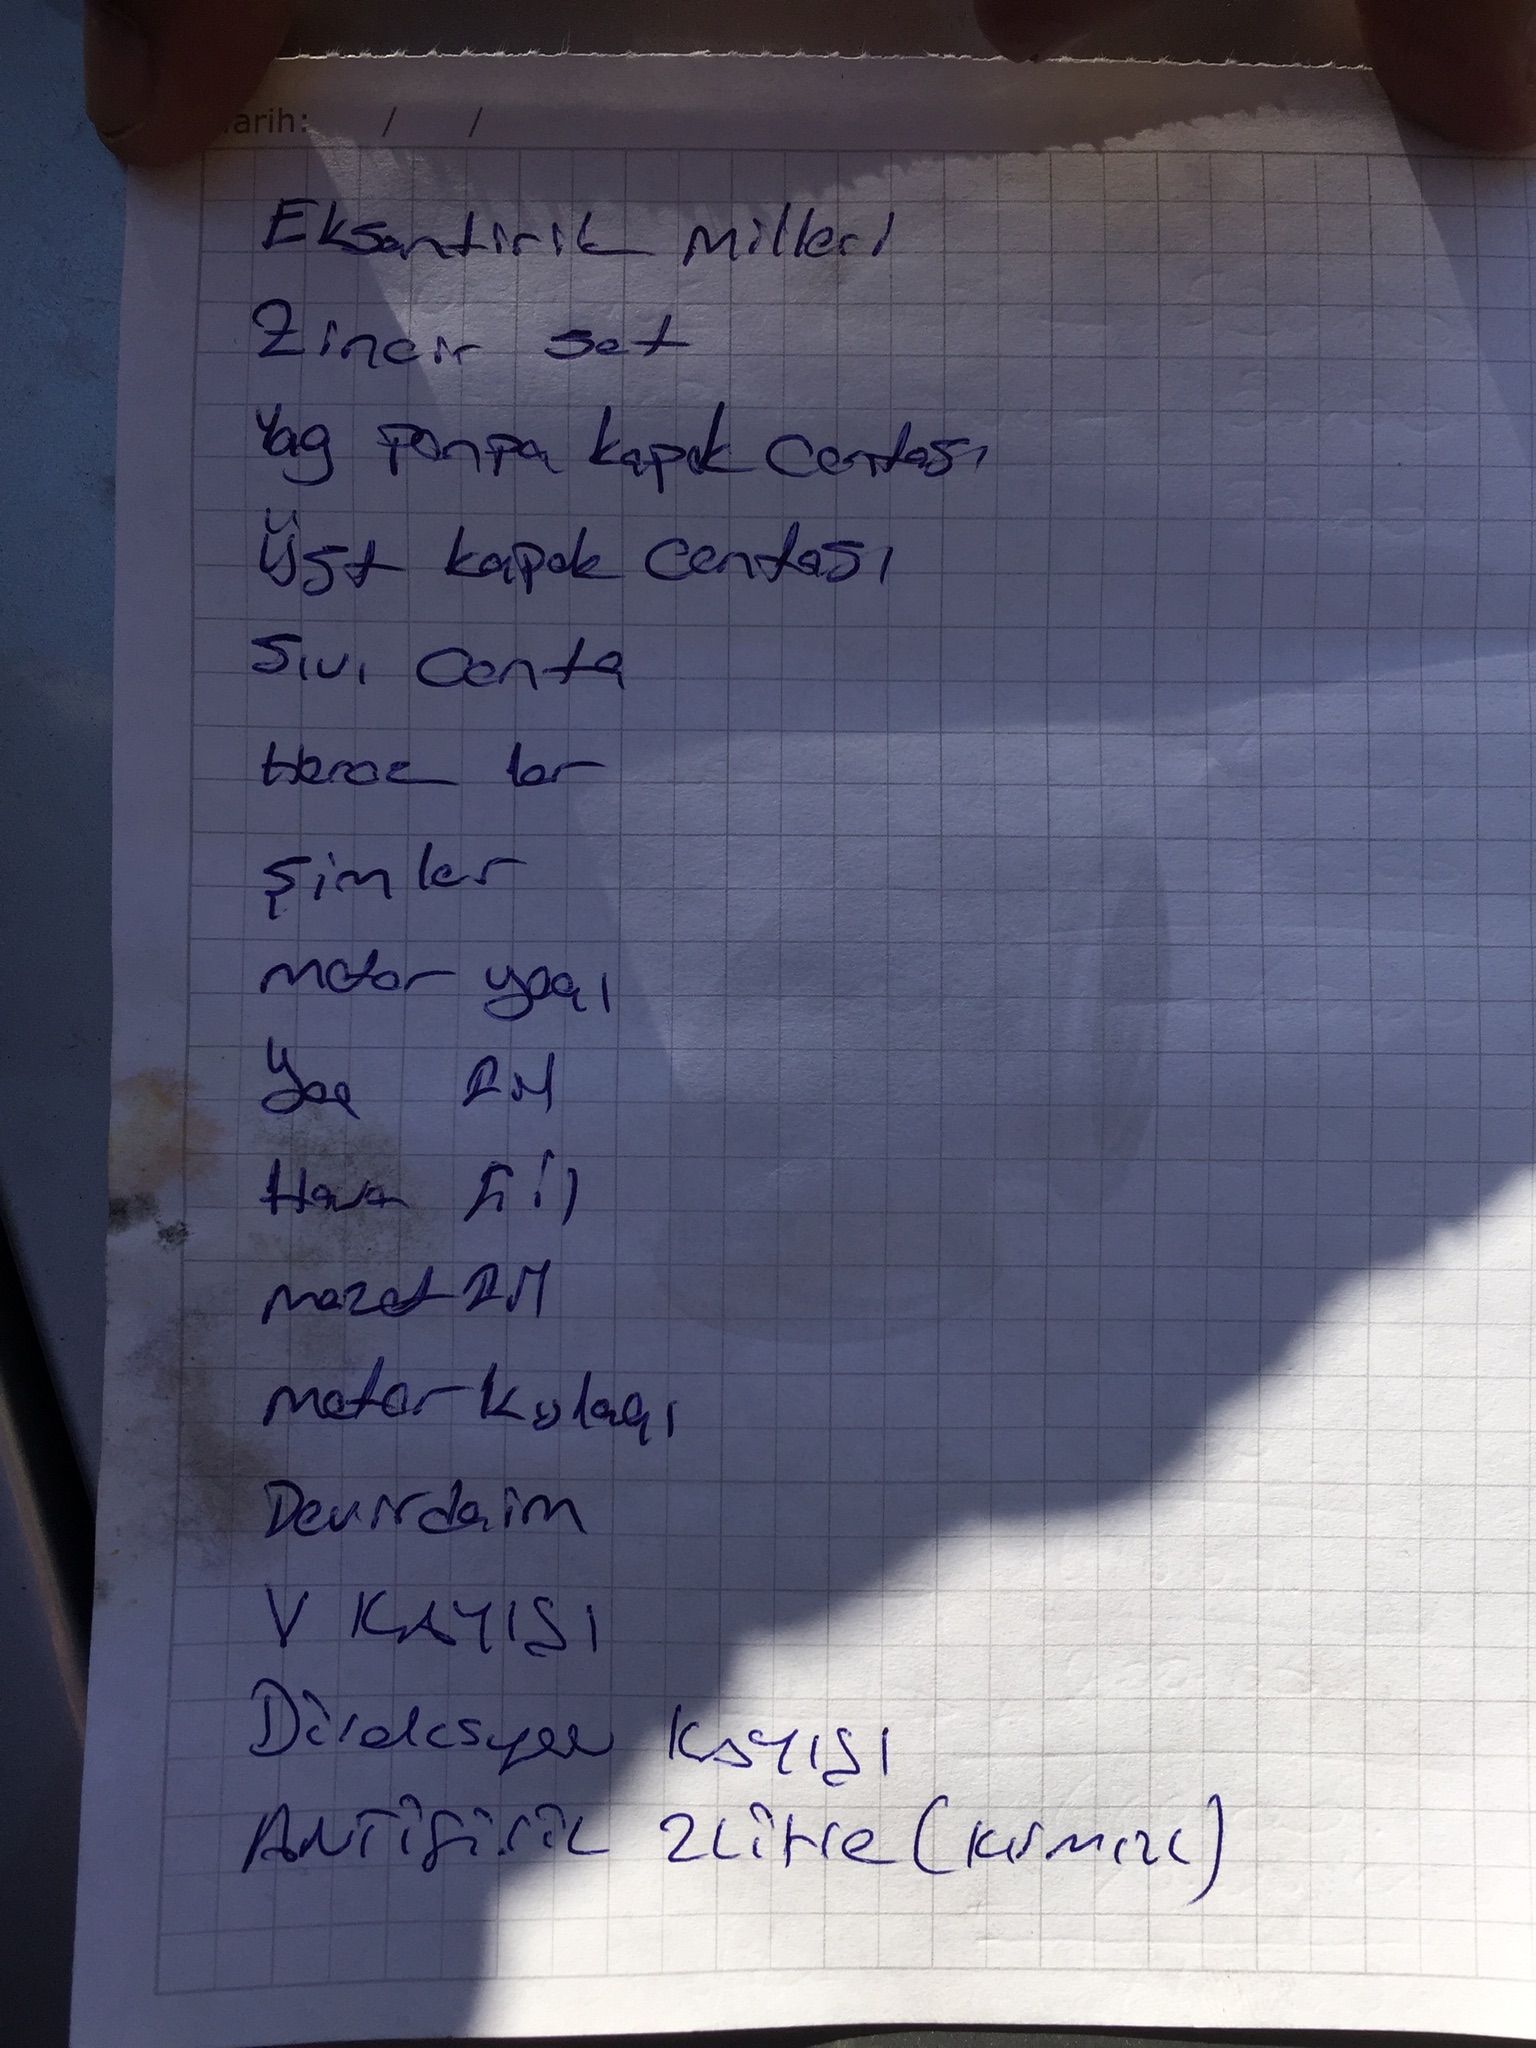 arih: / /
Eksantirik milleri
Zincir set
Yag ponpa kapak Contası
Üst kapak Contası
Sıvı Conta
Horoz lar
Şimler
motor yagı
Yag
Hava fil
mazot
motor kulagı
Devirdaim
V KAYIŞI
Direksyon KAYIŞI
ANTifirik 2Litre (KIRMIZI)